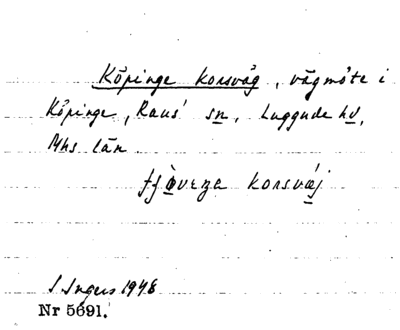 Köpinge korsväg, vägmöte i
Köpinge, Raus' sn, Luggude hd,
Mhs län
korsvæj
I. Ingers 1948
Nr 5691.